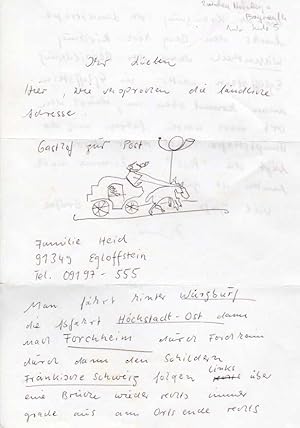 Ihr Lieben
Hier, wie versprochen die ländliche
Adresse.
Gasthof zur Post
Familie Heid
91349 Egloffstein
Tel. 09197 - 555
Man fährt hinter Würzburg
die Abfahrt Höchstadt-Ost dann
nach Forchheim durch Forchheim
durch dann den Schildern
Fränkische Schweiz folgen links über
eine Brücke wieder rechts immer
grade aus am Ortsende rechts